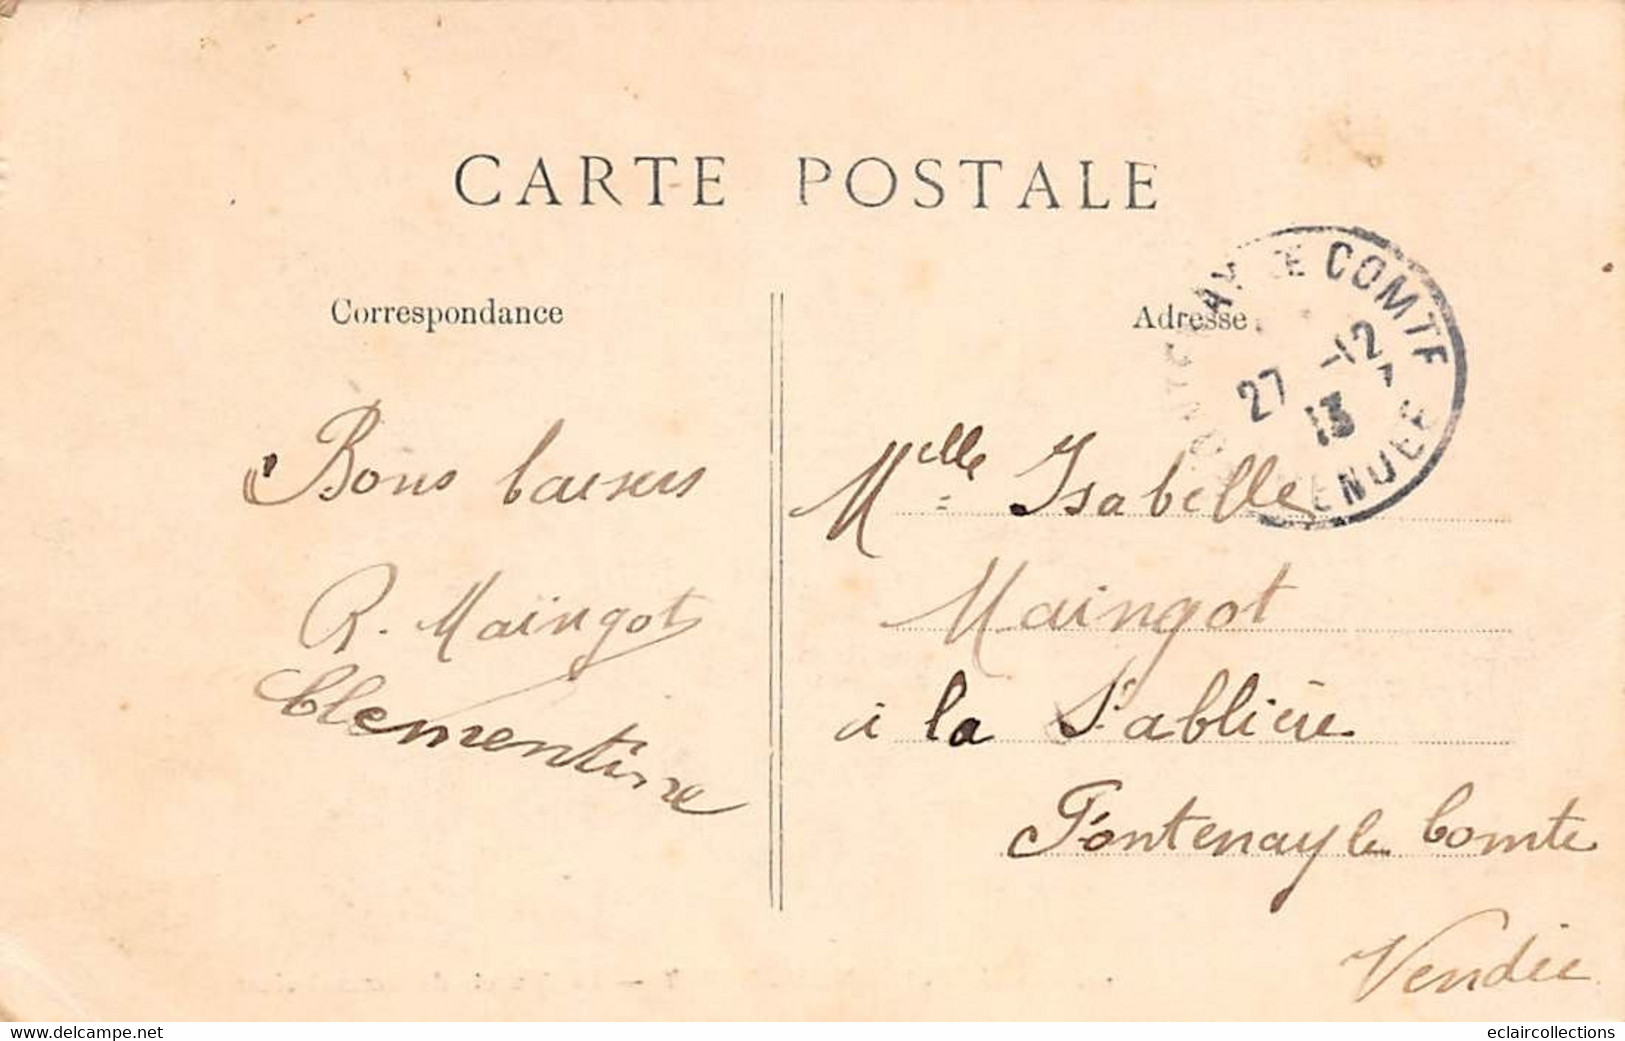 CARTE POSTALE
Correspondance
Bons baisers
R. Maingot
Clementine
Adresse
COMTE
27 -12
13
Mlle Isabelle
Maingot
à la Sablière
Fontenay le Comte
Vendée
www.delcampe.net
eclaircollections